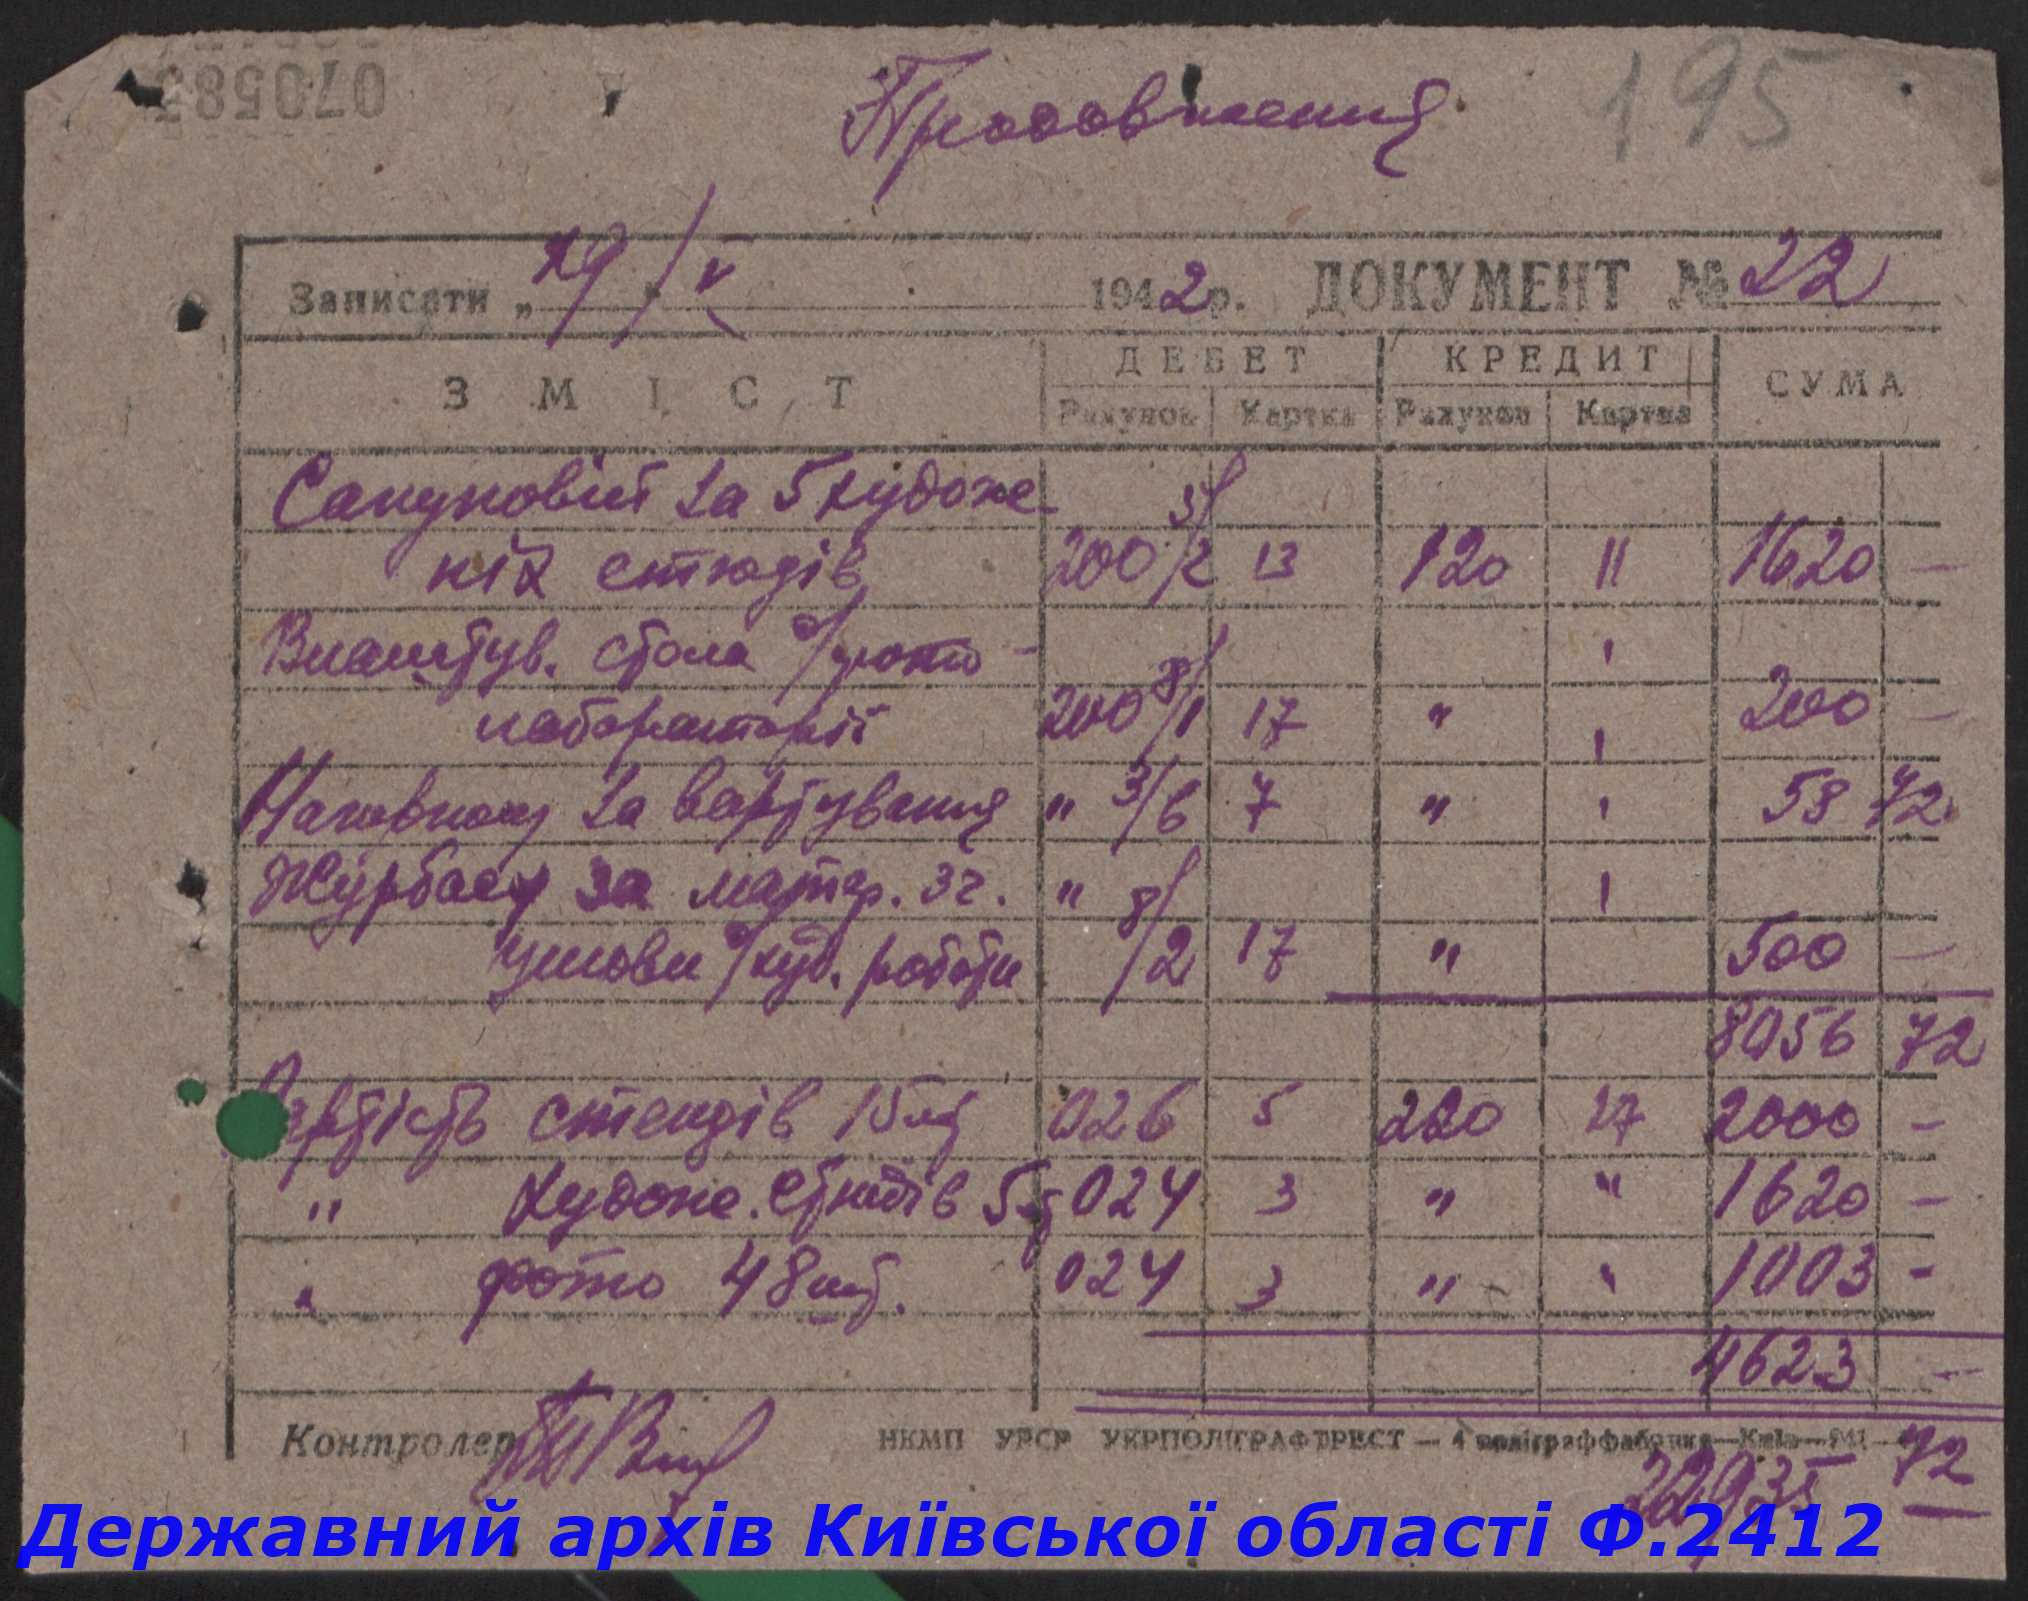 07058
Продовження
195
Записати „ 19/V 1942 р. ДОКУМЕНТ № 22
ЗМІСТ ДЕБЕТ КРЕДИТ СУМА
Рахунок Картка Рахунок Картка
за 5 художе-
ніх етюдів 200 3/2 13 120 11 1620 —
Влаштув. стола ф/фото-
лабораторії 200 8/1 17 " 200 —
за вартування " 3/6 7 " 58 72
за матер. зг. "
умови худ. роботи 8/2 17 " 500 —
8056 72
Вартість стендів 15 шт 026 5 220 17 2000 —
" Худож. етюдів 5 шт 024 3 " " 1620 —
" фото 48 шт. 024 3 " " 1003 —
4623 —
Контролер НКМП УРСР УКРПОЛІГРАФТРЕСТ — 4 поліграффабрика — Київ — 941
22935 72
Державний архів Київської області Ф.2412